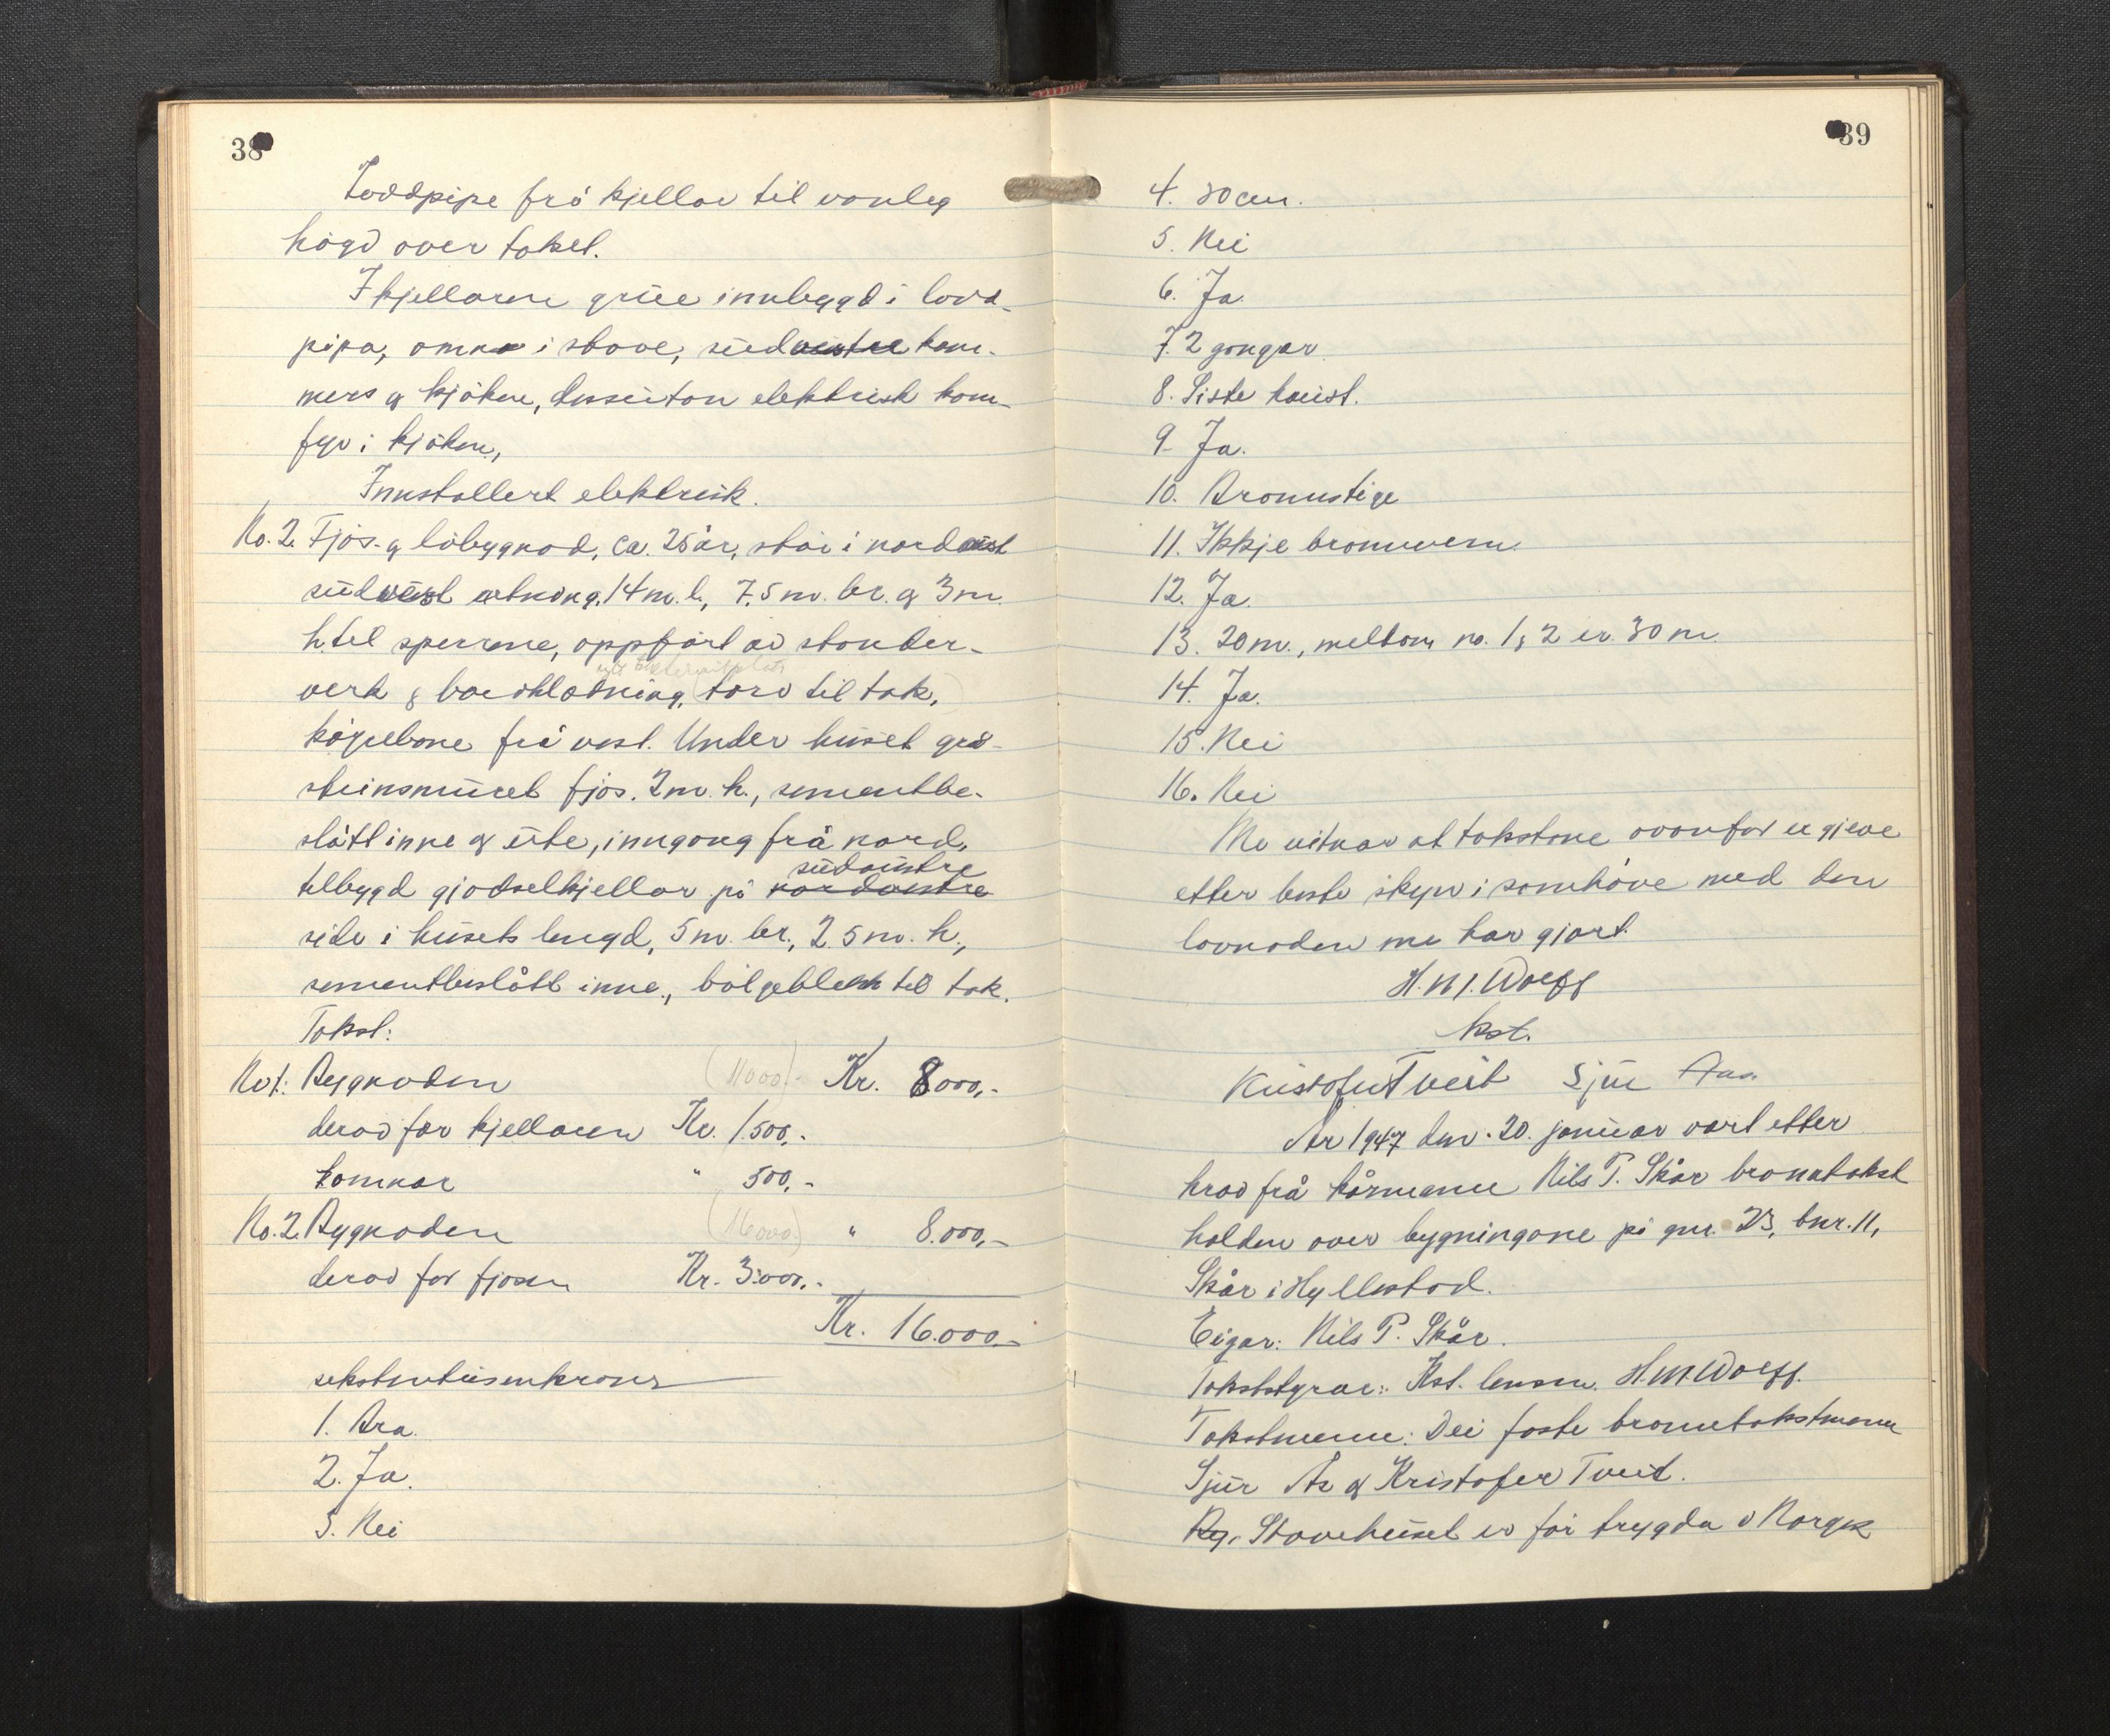 38
Loddpipe frå kjellar til vanleg
høgd over taket.
I kjellaren grue innbygd i lodd-
pipa, omn i stove, sud kam-
mers og kjøken, dessutan elektrisk kom-
fyr i kjøken,
Innstallert elektrisk.
No. 2. Fjøs- og løbygnad, ca. 25 år, står i nordaust
sudvest retning, 14 m. l., 7,5 m. br. og 3 m.
h. til sperrene, oppført av stender-
verk og bordkledning, (torv til tak,)
køyrebane frå vest. Under huset grå-
steinsmuret fjøs. 2 m. h., sementbe-
slått inne og ute, inngang frå nord,
sudaustre
tilbygd gjødselkjellar på nordaustre
side i husets lengd, 5 m. br., 2.5 m. h.,
sementbeslått inne, bølgeblekk til tak.
Takst:
No 1: Bygnaden (11000.- Kr. 8000,-
derav for kjellaren Kr. 1.500,-
komnar " 500,-
No. 2. Bygnaden (16000.) " 8.000,-
derav for fjøsen Kr. 3.000,-
Kr. 16.000,-
sekstentusenkroner
1. Bra.
2. Ja.
3. Nei
39
4. 30 cm.
5. Nei
6. Ja.
7. 2 gongar
8. Siste haust.
9. Ja.
10. Brannstige
11. Ikkje brannvern.
12. Ja.
13. 20 m., mellom no. 1 & 2 er 30 m.
14. Ja.
15. Nei
16. Nei
Me vitnar at takstane ovanfor er gjeve
etter beste skyn i samhøve med den
lovnaden me har gjort.
H. M. Wolff
kst.
Kristofer Tveit Sjur Aas
År 1947 den 20. januar vart etter
krav frå kårmann Nils P. Skår branntakst
halden over bygningane på gnr. 23, bnr. 11,
Skår i Hyllestad.
Eigar: Nils P. Skår.
Takststyrar: Kst. lensm. H. M. Wolff.
Takstmenn: Dei faste branntakstmenn
Sjur Ås og Kristofer Tveit.
Stovehuset er før trygda i Norges